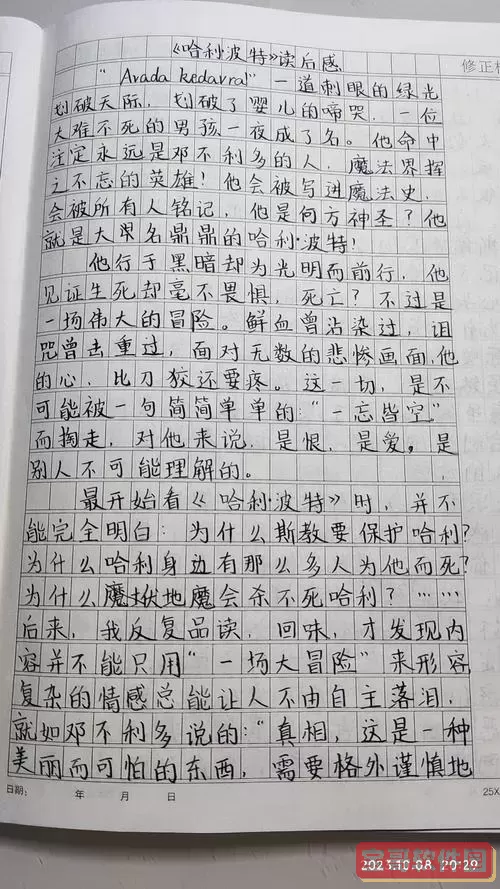 《哈利波特》读后感
修正栏
"Avada kedavra!"一道刺眼的绿光
划破天际，划破了婴儿的啼哭，一位
大难不死的男孩一夜成了名。他命中
注定永远是邓不利多的人，魔法界挥
之不忘的英雄！他会被写进魔法史，
会被所有人铭记，他是何方神圣？他
就是大名鼎鼎的哈利·波特！
他行于黑暗却为光明而前行，他
见证生死却毫不畏惧，死亡？不过是
一场伟大的冒险。鲜血曾沾染过，诅
咒曾击重过，面对无数的悲惨画面，他
的心，比刀狡还要疼。这一切，是不
可能被一句简简单单的："一忘皆空"
而掏走，对他来说，是恨，是爱，是
别人不可能理解的。
最开始看《哈利·波特》时，并不
能完全明白：为什么斯教要保护哈利？
为什么哈利身边有那么多人为他而死？
为什么魔地魔会杀不死哈利？……
后来，我反复品读，回味，才发现内
容并不能只用"一场大冒险"来形容，
复杂的情感总能让人不由自主落泪，
就如邓不利多说的："真相，这是一种
美丽而可怕的东西，需要格外谨慎地
日期： 年 月 日
25X
2023.10.08 20:29